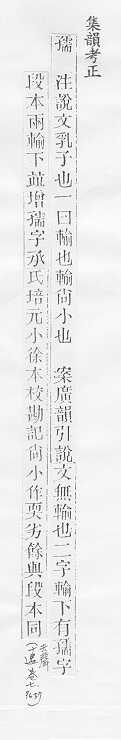 集韻考正
孺 注說文乳子也一曰輸也輸尙小也 案廣韻引說文無輸也二字輸下有孺字
段本兩輸下並增孺字承氏培元小徐本校勘記尙小作耎劣餘與段本同